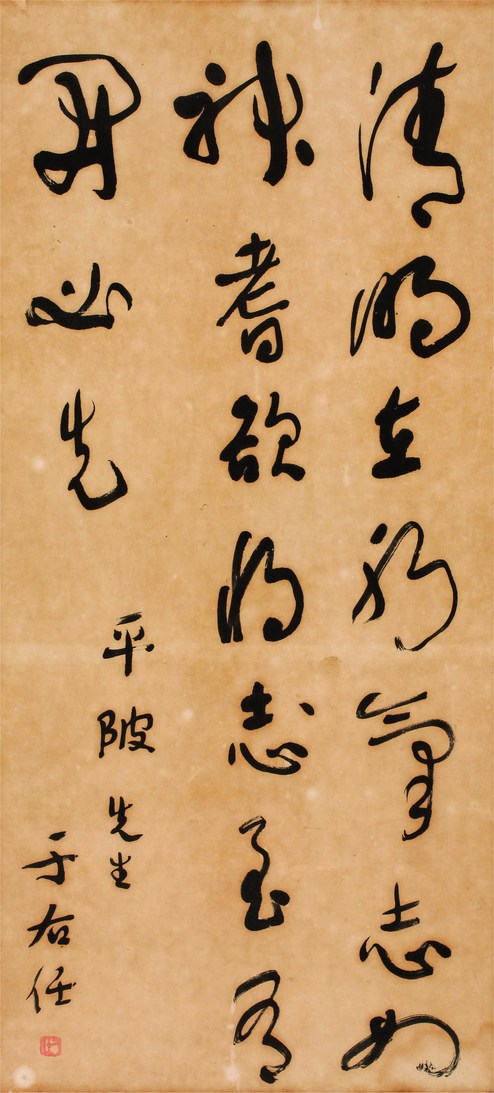 清明在躬氣志如
神耆欲將志至有
開必先
平陂先生
于右任